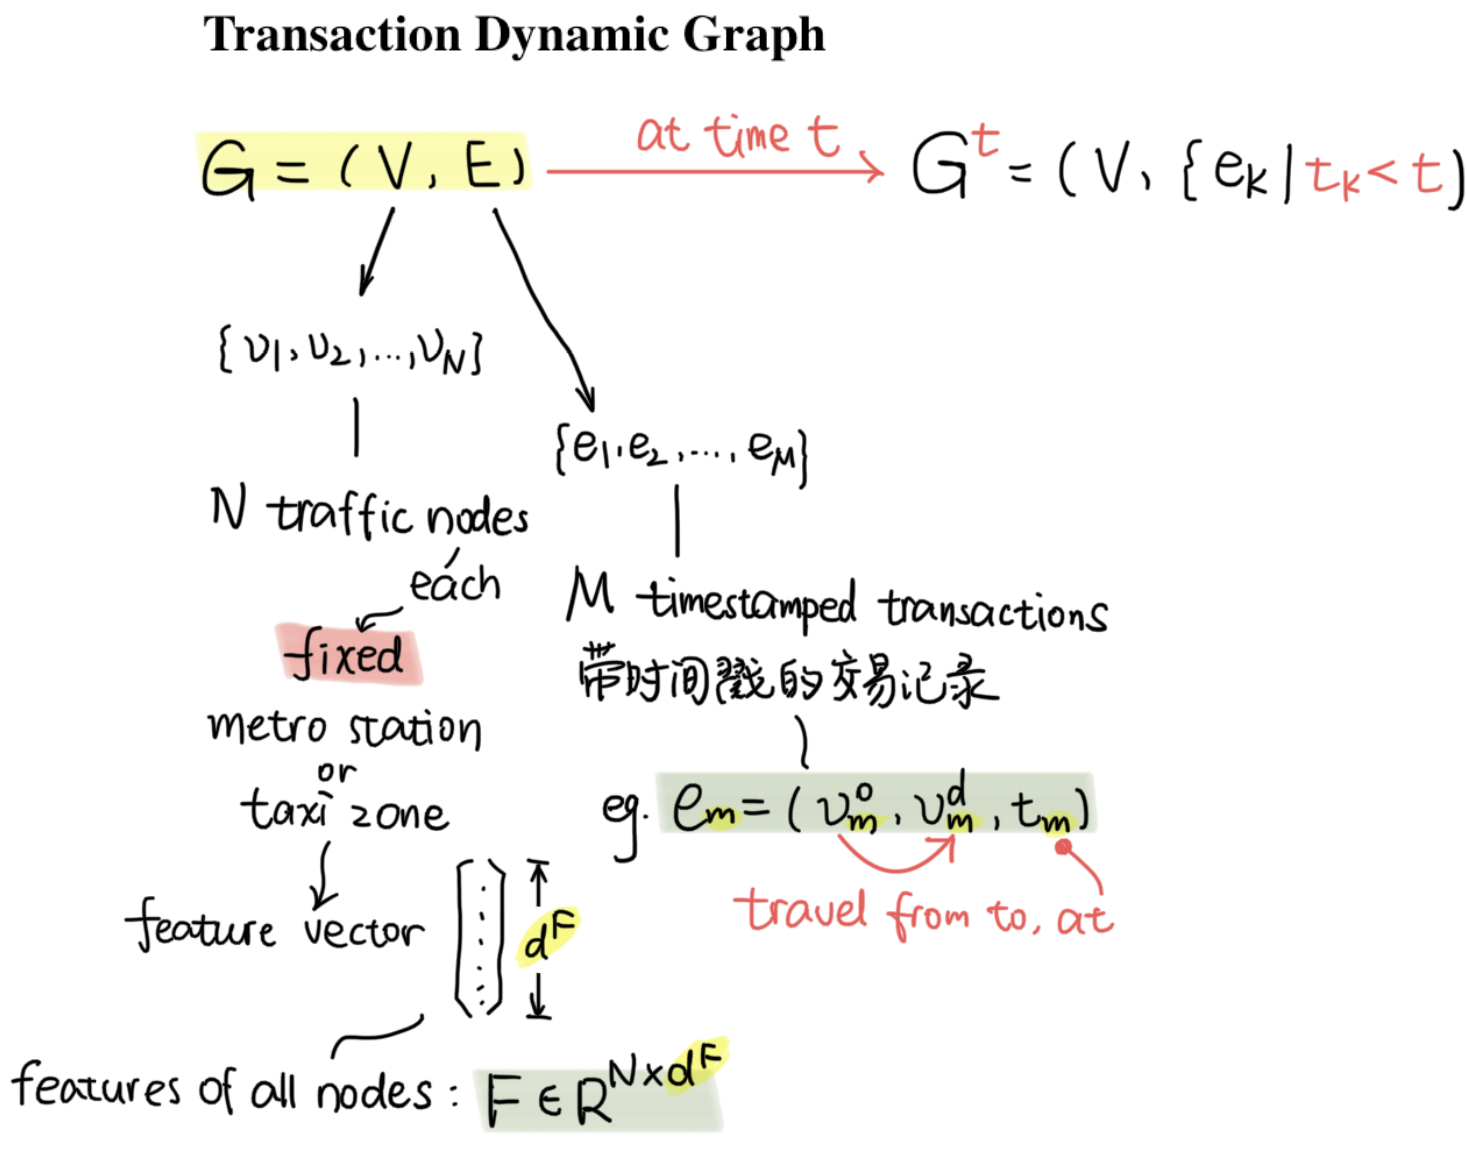 Transaction Dynamic Graph
G = (V, E) at time t Gᵗ = (V, {eₖ | tₖ < t)
{v₁, v₂, ..., v_N}
{e₁, e₂, ..., e_M}
N traffic nodes
each
fixed
metro station
or
taxi zone
feature vector
d^F
features of all nodes : F ∈ R^{N×d^F}
M timestamped transactions
带时间戳的交易记录
eg. e_m = (v_m^o, v_m^d, t_m)
travel from to, at